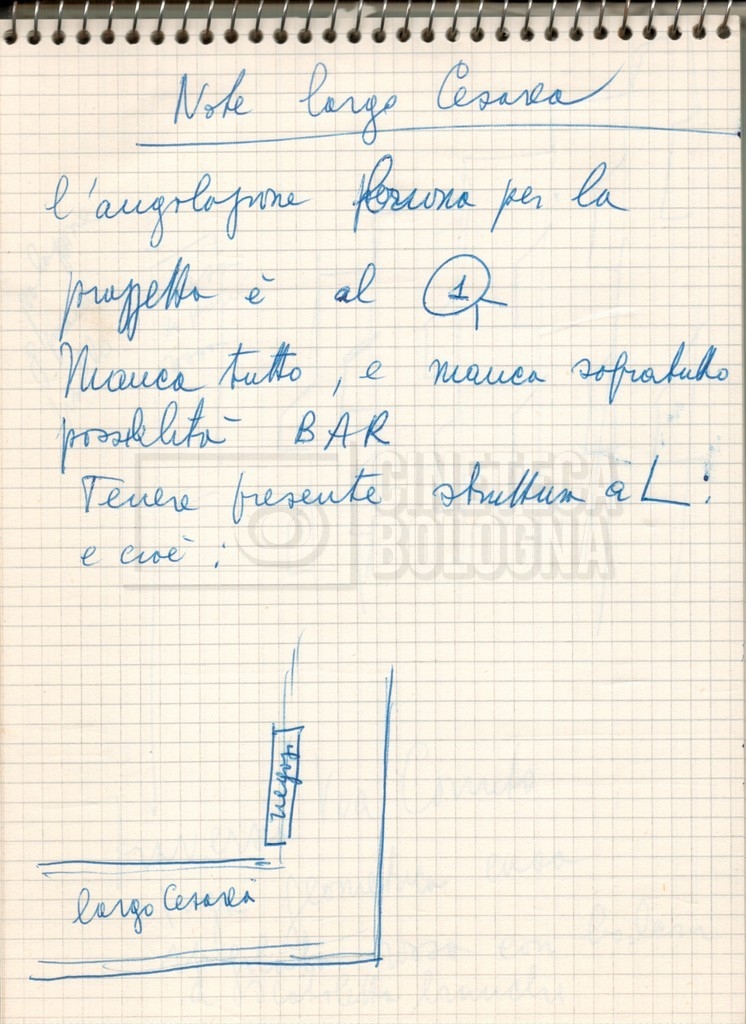 Note largo Cesarea
l'angolazione per la
è al 1
Manca tutto, e manca sopratutto
possibilità BAR
Tenere presente struttura a L:
e cioè:
negozi
largo Cesarea
CINETECA
BOLOGNA